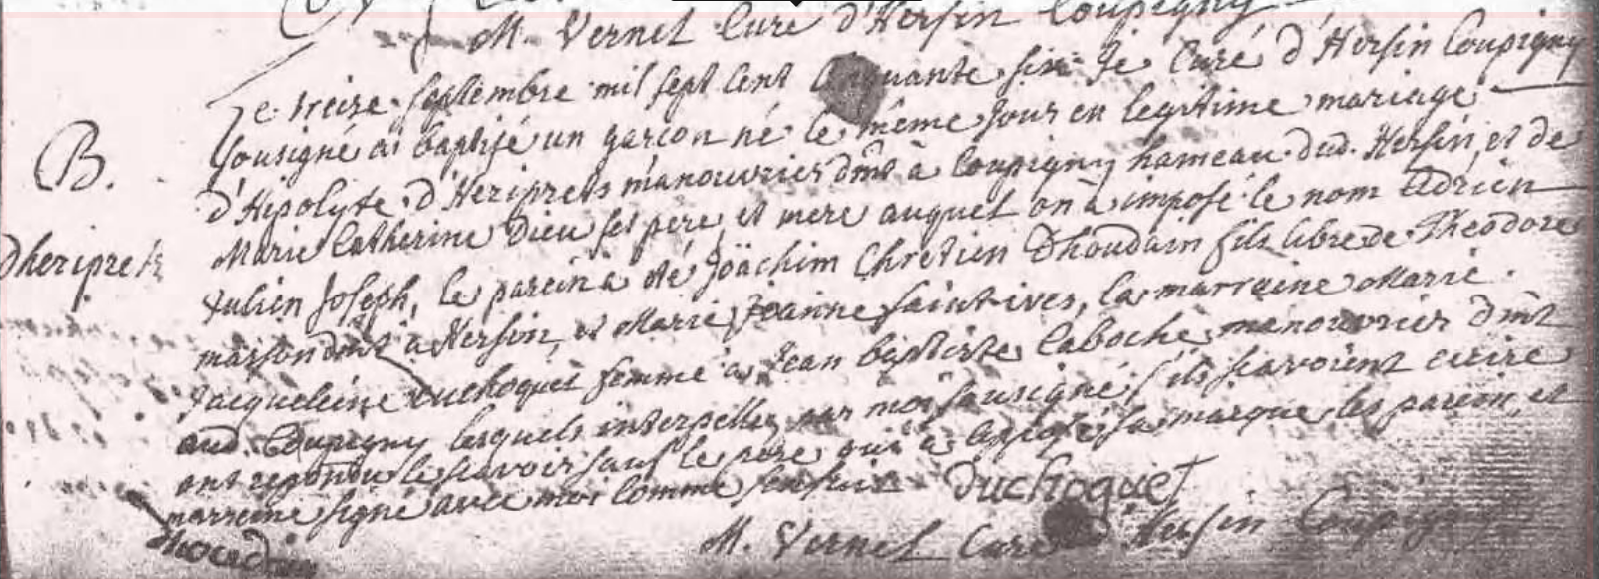 M. Vernel Curé d'Hersin Coupigny
Le treize septembre mil sept cent cinquante six Je Curé d'Hersin Coupigny
B.
sousigné ai baptisé un garcon né le même jour en legitime mariage
d'Hipolyte d'Heriprets manouvrier dmt à Coupigny hameau dud. Hersin, et de
Dheripretz
Marie Catherine Dieu ses pere et mere auquel on à imposé le nom Adrien
Julien Joseph, le parein à été Joachim Chretien Dhoudain fils libre de Theodore
masson dmt à Hersin, et Marie Jeanne saint-ives, la marraine Marie
Jacqueleine Duchoquet femme à Jean baptiste Caboche manouvrier dmt
aud. Coupigny lesquels interpellez par moi sousigné s'ils scavoient ecrire
ont repondu le scavoir sauf le pere qui à apposé sa marque, les parein, et
marreine signé avec moi comme sensuit Duchoquet
M. Vernel Curé d'Hersin Coupigny
Dhoudain